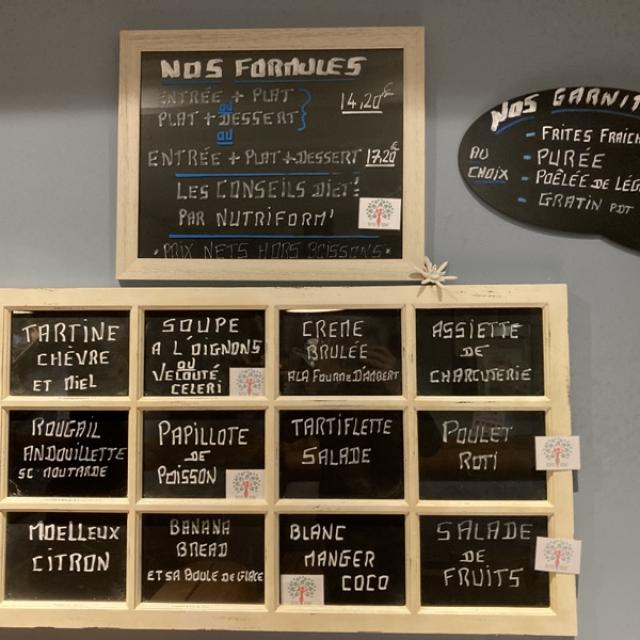 NOS FORMULES
ENTRÉE + PLAT
OU
PLAT + DESSERT
14,20€
OU
ENTRÉE + PLAT + DESSERT 17,20€
LES CONSEILS DIET!
PAR NUTRIFORM'
• PRIX NETS HORS BOISSONS •
NOS GARNIT
AU CHOIX
- FRITES FRAICH
- PURÉE
- POÊLÉE DE LÉG
- GRATIN PDT
TARTINE
CHÈVRE
ET MIEL
SOUPE
A L'OIGNONS
OU
VELOUTÉ
CELERI
CREME
BRULÉE
A LA FOURME D'AMBERT
ASSIETTE
DE
CHARCUTERIE
ROUGAIL
ANDOUILLETTE
SC MOUTARDE
PAPILLOTE
DE
POISSON
TARTIFLETTE
SALADE
POULET
ROTI
MOELLEUX
CITRON
BANANA
BREAD
ET SA BOULE DE GLACE
BLANC
MANGER
COCO
SALADE
DE
FRUITS